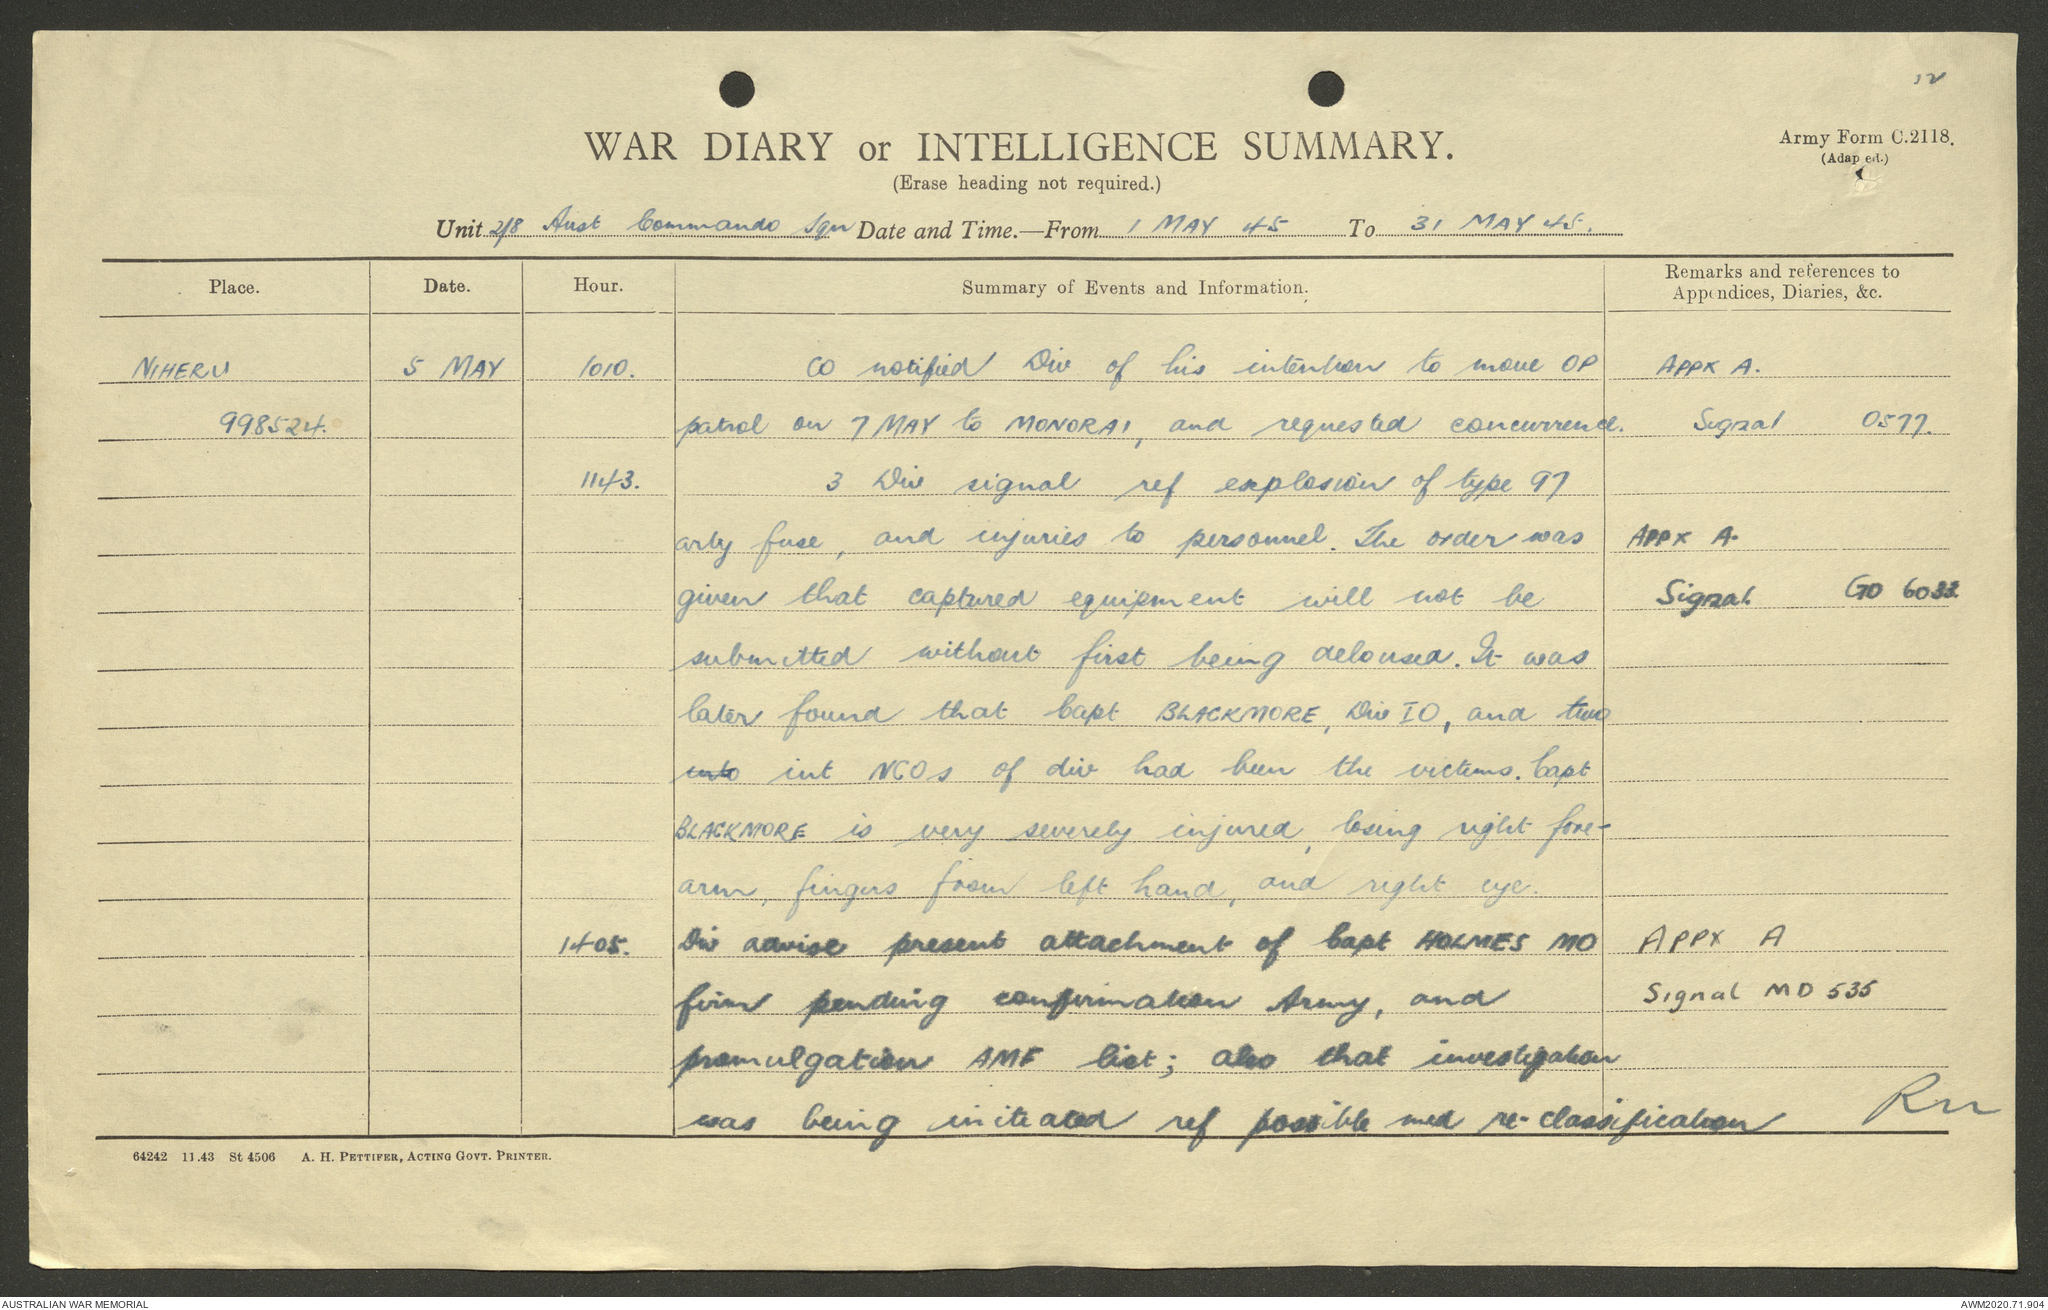 12
WAR DIARY or INTELLIGENCE SUMMARY.
Army Form C.2118.
(Adap ed.)
(Erase heading not required.)
Unit 2/8 Aust Commando Sqn Date and Time.—From 1 MAY 45 To 31 MAY 45.
Place. Date. Hour. Summary of Events and Information. Remarks and references to Appendices, Diaries, &c.
NIHERU 5 MAY 1010. CO notified Div of his intention to move OP APPX A.
998524. patrol on 7 MAY to MONORAI, and requested concurrence. Signal 0577.
1143. 3 Div signal ref explosion of type 97
arty fuse, and injuries to personnel. The order was APPX A.
given that captured equipment will not be Signal GO 6033
submitted without first being deloused. It was
later found that Capt BLACKMORE, Div IO, and two
into int NCOs of div had been the victims. Capt
BLACKMORE is very severely injured, losing right fore-
arm, fingers from left hand, and right eye.
1405. Div advise present attachment of Capt HOLMES MO APPX A
firm pending confirmation Army, and Signal MD 535
promulgation AMF list; also that investigation
was being initeated ref possible med re-classification
64242 11.43 St 4506 A. H. PETTIFER, ACTING GOVT. PRINTER.
AUSTRALIAN WAR MEMORIAL AWM2020.71.904